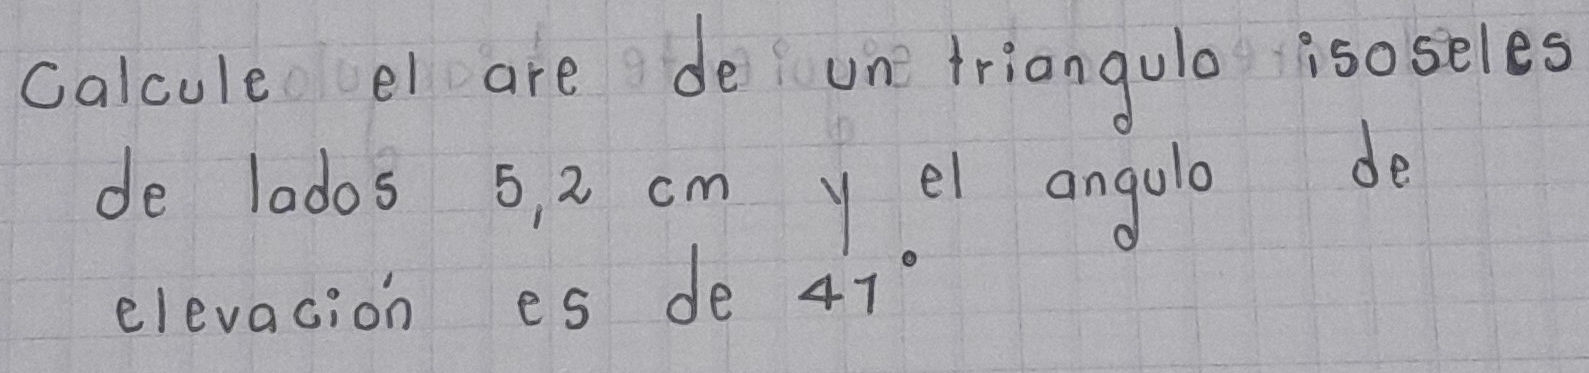 Calcule el are de un triangulo isoseles
de lados 5,2 cm y el angulo de
elevación es de 41°